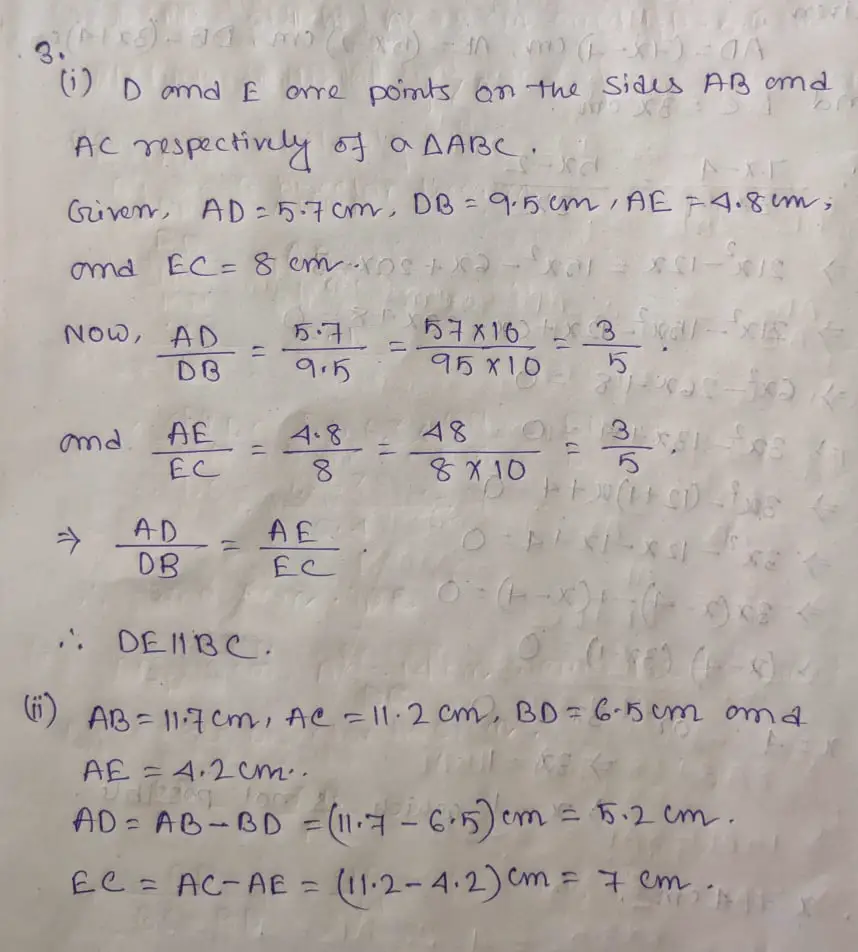 3.
(i) D and E are points on the sides AB and
AC respectively of a △ABC.
Given, AD = 5.7 cm, DB = 9.5 cm, AE = 4.8 cm,
and EC = 8 cm.
NOW, AD/DB = 5.7/9.5 = 57×10/95×10 = 3/5.
and AE/EC = 4.8/8 = 48/8×10 = 3/5.
⇒ AD/DB = AE/EC.
∴ DE||BC.
(ii) AB = 11.7 cm, AC = 11.2 cm, BD = 6.5 cm and
AE = 4.2 cm.
AD = AB - BD = (11.7 - 6.5) cm = 5.2 cm.
EC = AC - AE = (11.2 - 4.2) cm = 7 cm.